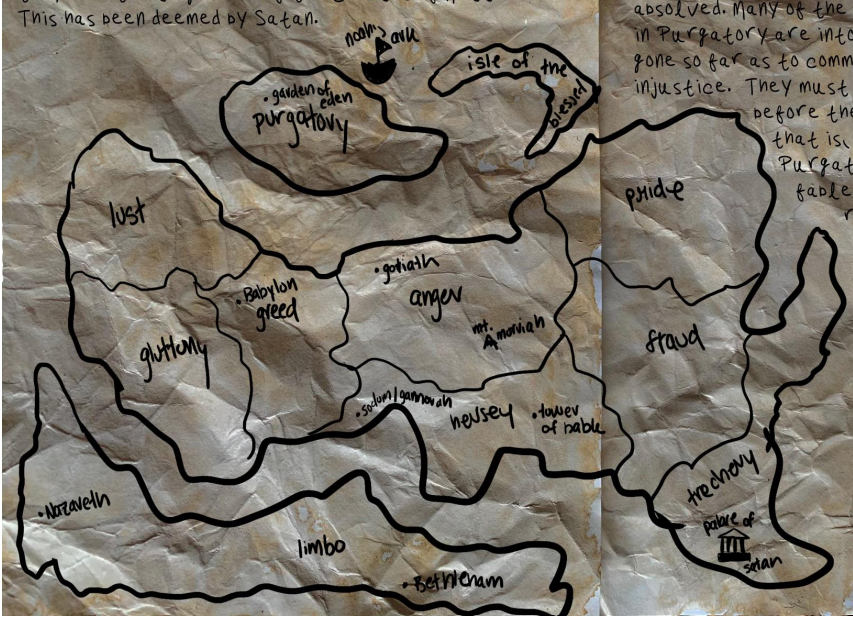 This has been deemed by Satan.
absolved. Many of the
in Purgatory are into
gone so far as to comm
injustice. They must
before the
that is,
Purgat
fable
noah's ark
isle of the
blessed
garden of
eden
purgatory
pride
lust
goliath
Babylon
greed
anger
mt.
moriah
gluttony
fraud
sodum/gammorah
hersey
tower
of bable
trechery
Nazareth
palace of
satan
limbo
Bethleham